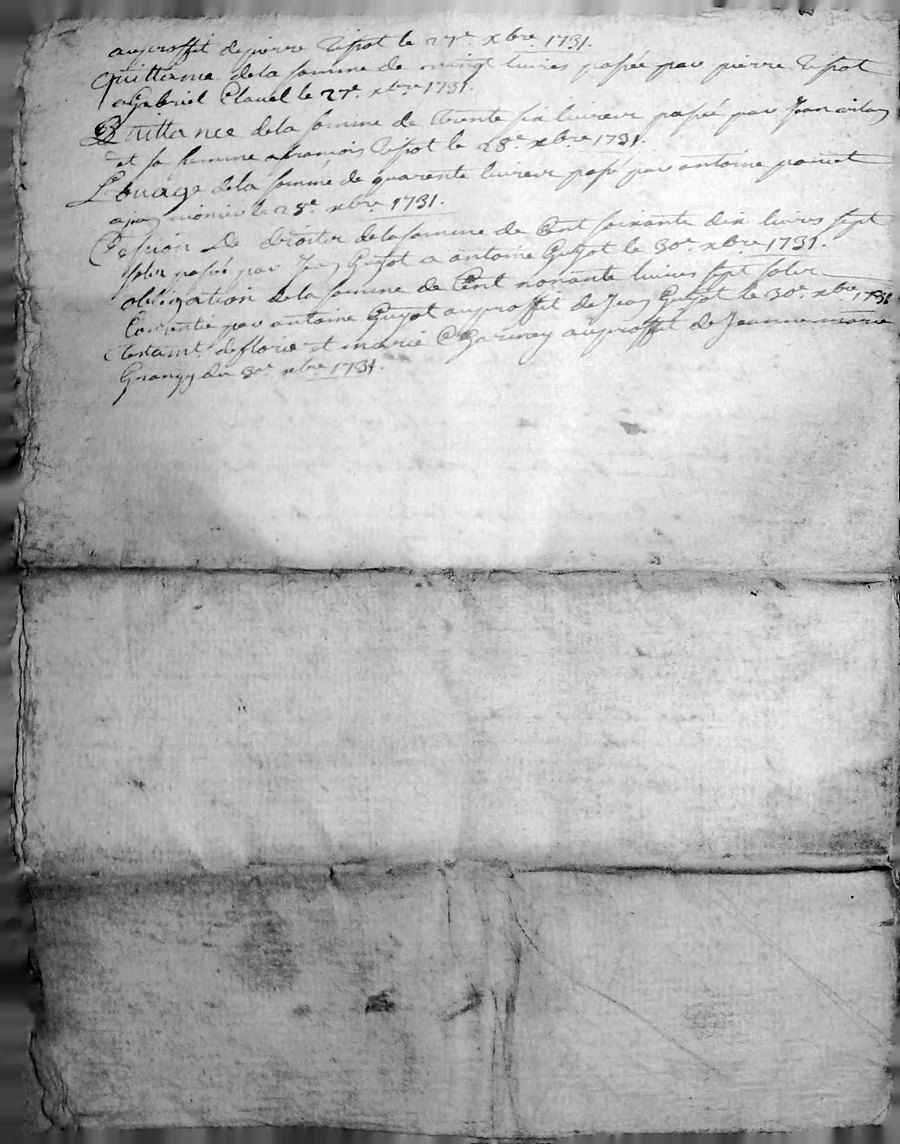 au proffit de pierre Tissot le 27e xbre 1731.
Quittance de la somme de vingt livres passée par pierre Tissot
a Gabriel Clauel le 27e. xbre 1731.
Quittance de la somme de trente six livres passée par Jean
et sa femme a francois Tissot le 28e xbre 1731.
Louage de la somme de quarente livres passé par antoine
a le 28e xbre 1731.
Cession de droiter de la somme de Cent soixante dix livres sept
soler passée par Jean Guyot a antoine Guyot le 30e xbre 1731.
obligation de la somme de Cent nonante livres sept soler
Consentie par antoine Guyot au proffit de Jean Guyot le 30e xbre 1731
testamt. de florie et marie au proffit de Jeanne marie
du 30e xbre 1731.